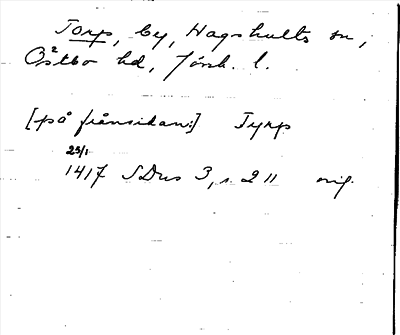 Torp, by, Hagshults sn,
Östbo hd, Jönk. l.
[på frånsidan:] Tyrp
23/1
1417 SDns 3, s. 211 orig.